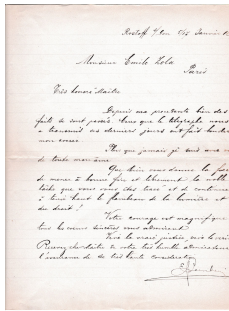 Rostoff s/Don 1/13 Janvier
Monsieur Emile Zola
Paris
Très honoré Maître
Depuis ma première bien des
faits se sont passés. Ceux que le télégraphe nous
a transmis ces derniers jours ont fait
mon coeur
Plus que jamais je suis avec vous
de toute mon âme
Que Dieu vous donne la force
de mener à bonne fin et librement la noble
tâche que vous vous êtes tracé et de continuer
à tenir haut le flambeau de la lumière et
du droit !
Votre courage est magnifique
tous les coeurs sincères vous admirent
Vive la vraie justice, vive la vraie
Recevez cher Maître de votre très humble
l'assurance de sa très haute considération